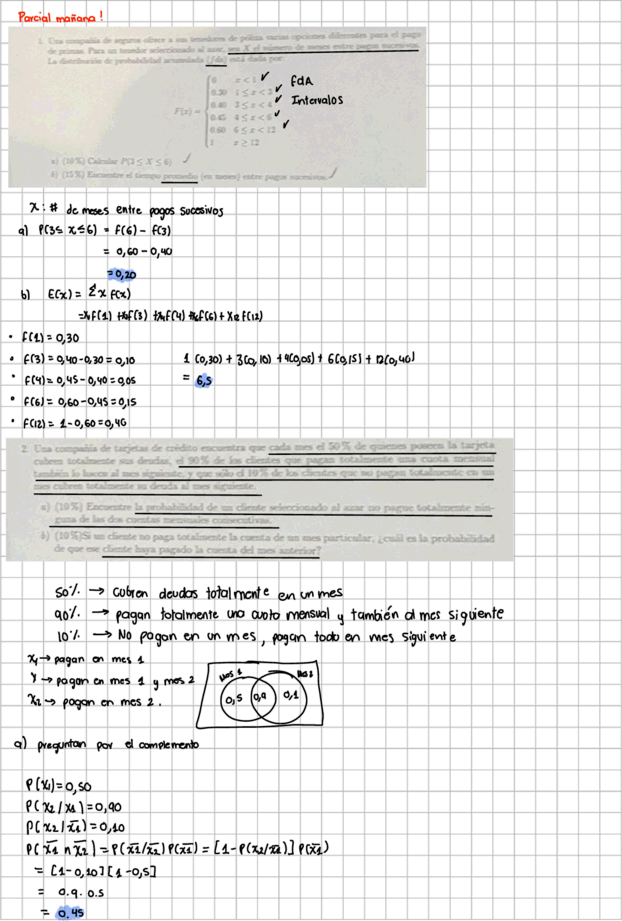 Parcial mañana!
1. Una compañía de seguros ofrece a sus tenedores de póliza varias opciones diferentes para el pago
de primas. Para un tenedor seleccionado al azar, sea X el número de meses entre pagos sucesivos.
La distribución de probabilidad acumulada (fda) está dada por:
F(x) =
0 x < 1
0.30 1 ≤ x < 3
0.40 3 ≤ x < 4
0.45 4 ≤ x < 6
0.60 6 ≤ x < 12
1 x ≥ 12
FdA
Intervalos
a) (10 %) Calcular P(3 ≤ X ≤ 6)
b) (15 %) Encuentre el tiempo promedio (en meses) entre pagos sucesivos.
X: # de meses entre pagos sucesivos
a) P(3≤ x≤6) = F(6) - F(3)
= 0,60 - 0,40
= 0,20
b) E(x) = Σ x f(x)
• f(1) = 0,30
• f(3) = 0,40 - 0,30 = 0,10
• f(4) = 0,45 - 0,40 = 0,05
• f(6) = 0,60 - 0,45 = 0,15
• f(12) = 1 - 0,60 = 0,40
1 (0,30) + 3(0,10) + 4(0,05) + 6(0,15) + 12(0,40)
= 6,5
2. Una compañía de tarjetas de crédito encuentra que cada mes el 50 % de quienes poseen la tarjeta
cubren totalmente sus deudas, el 90 % de los clientes que pagan totalmente una cuota mensual
también lo hacen al mes siguiente, y que sólo el 10 % de los clientes que no pagan totalmente en un
mes cubren totalmente su deuda al mes siguiente.
a) (10 %) Encuentre la probabilidad de un cliente seleccionado al azar no pague totalmente nin-
guna de las dos cuentas mensuales consecutivas.
b) (10 %)Si un cliente no paga totalmente la cuenta de un mes particular, ¿cuál es la probabilidad
de que ese cliente haya pagado la cuenta del mes anterior?
50% → cubren deudas totalmente en un mes
90% → pagan totalmente una cuota mensual y también al mes siguiente
10% → No pagan en un mes, pagan todo en mes siguiente
X1 → pagan en mes 1
Y → pagan en mes 1 y mes 2
X2 → pagan en mes 2.
Mes 1
Mes 2
0,5 0,9 0,1
a) preguntan por el complemento
P(X1) = 0,50
P(X2/X1) = 0,90
P(X2/X̅1̅) = 0,10
P(X̅1̅ ∩ X̅2̅) = P(X̅2̅/X̅2̅) P(X̅1̅) = [1 - P(X2/X̅1̅)] P(X̅1̅)
= [1 - 0,10][1 - 0,5]
= 0.9 . 0.5
= 0.45